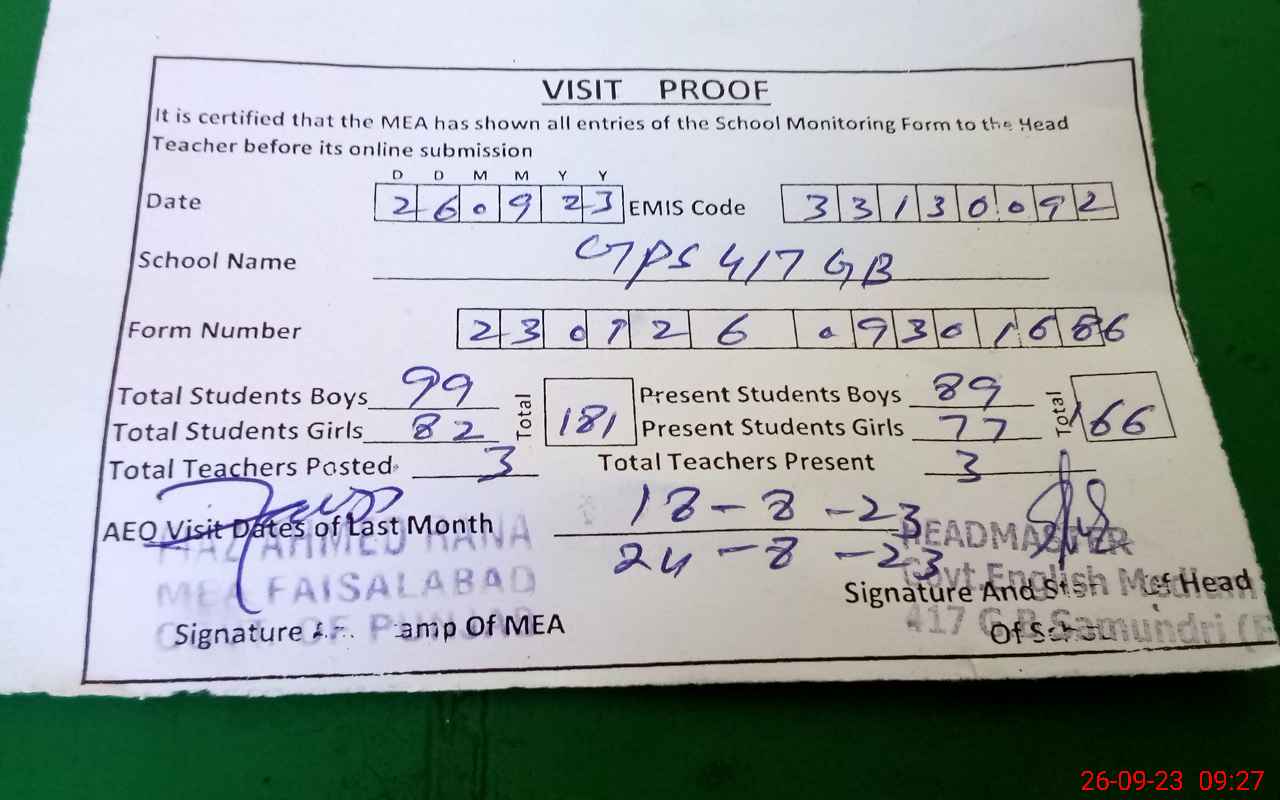 VISIT PROOF
It is certified that the MEA has shown all entries of the School Monitoring Form to the Head
Teacher before its online submission
D D M M Y Y
Date 26.923 EMIS Code 33130092
School Name GPS 417 GB
Form Number 230926 09301686
Total Students Boys 99 Total 181 Present Students Boys 89 Total 166
Total Students Girls 82 Present Students Girls 77
Total Teachers Posted 3 Total Teachers Present 3
AEO Visit Dates of Last Month 18-8-23
24-8-23
AHMED RANA
MEA FAISALABAD
GOVT OF PUNJAB
Signature amp Of MEA
HEADMASTER
Govt. English Medium
417 G.B Samundri
Signature And Of Head
Of School
26-09-23 09:27